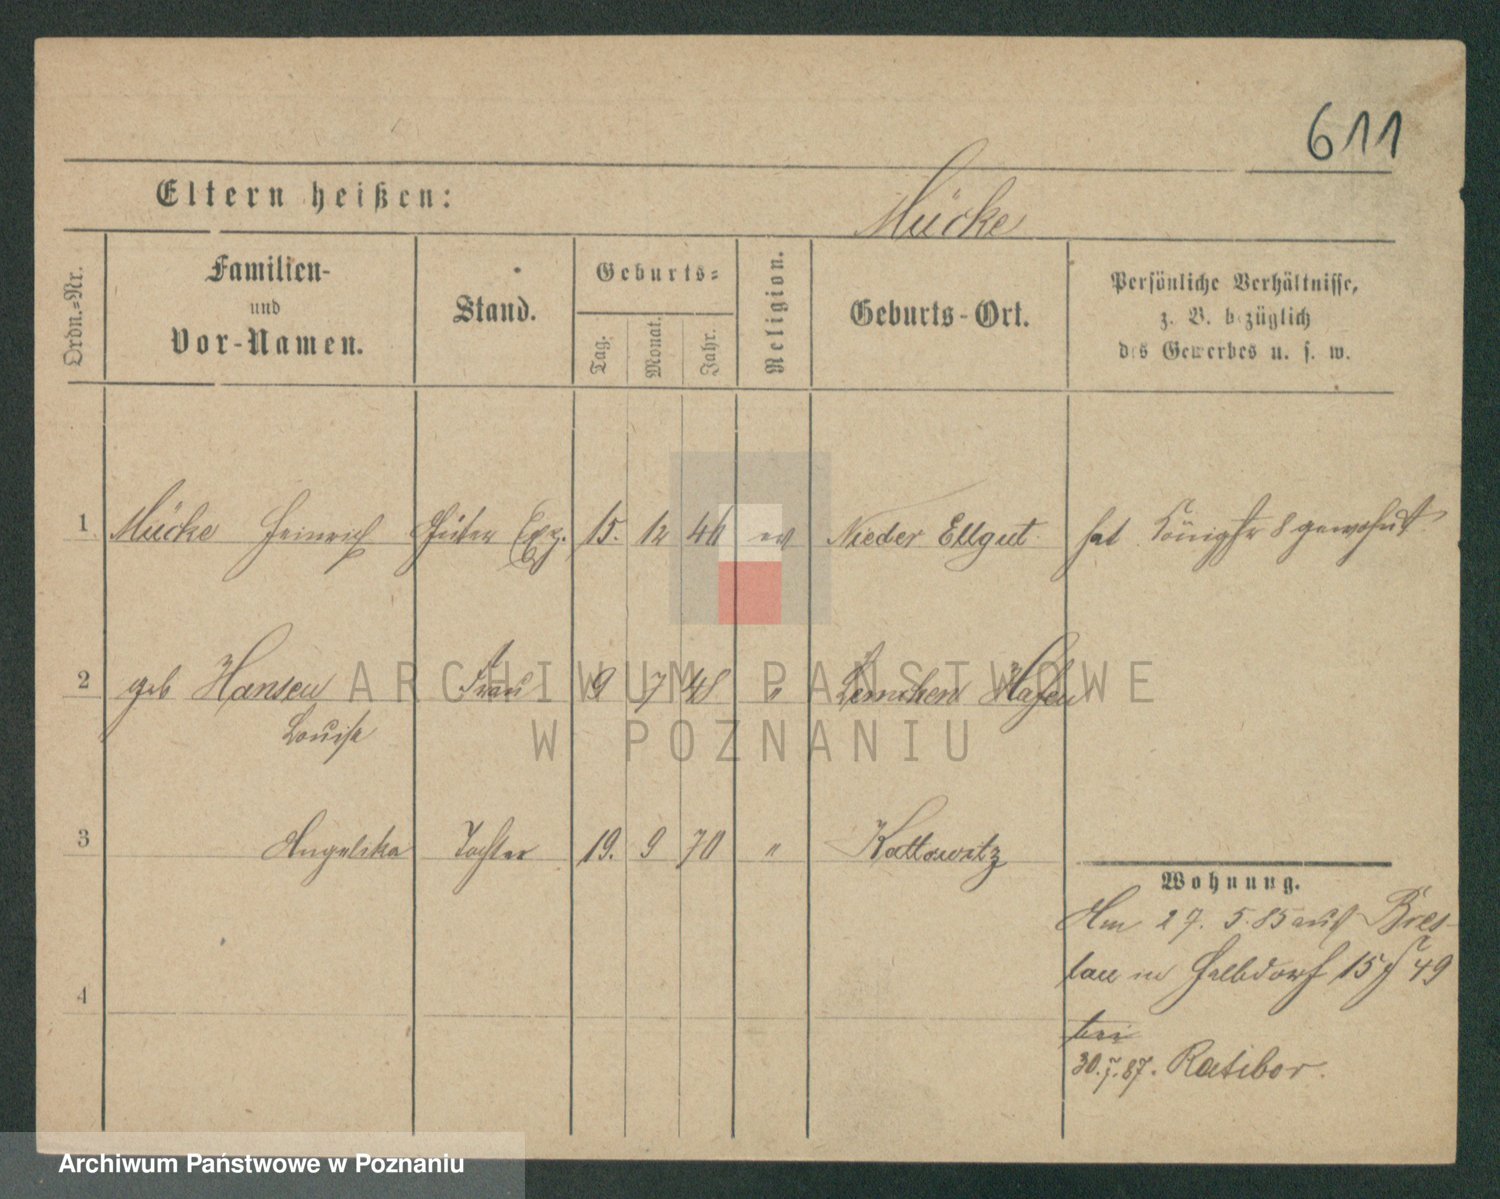 611
Eltern heißen: Mücke
Ordn.-Nr.
Familien-
und
Vor-Namen.
Stand.
Geburts-
Tag.
Monat.
Jahr.
Religion.
Geburts-Ort.
Persönliche Verhältnisse,
z. B. bezüglich
des Gewerbes u. s. w.
1 Mücke Heinrich Güter Exp. 15. 12 46 ev Nieder Ellgut hat Königstr 8 gewohnt
2 geb Hansen Frau 9 7 48 " Hafen
Louise
3 Angelika Tochter 19. 9 70 " Kattowitz
4
Wohnung.
Am 27. 5. 85 aus Bres-
lau in Halbdorf 15 49
bei
30. 87. Ratibor.
ARCHIWUM PAŃSTWOWE
W POZNANIU
Archiwum Państwowe w Poznaniu